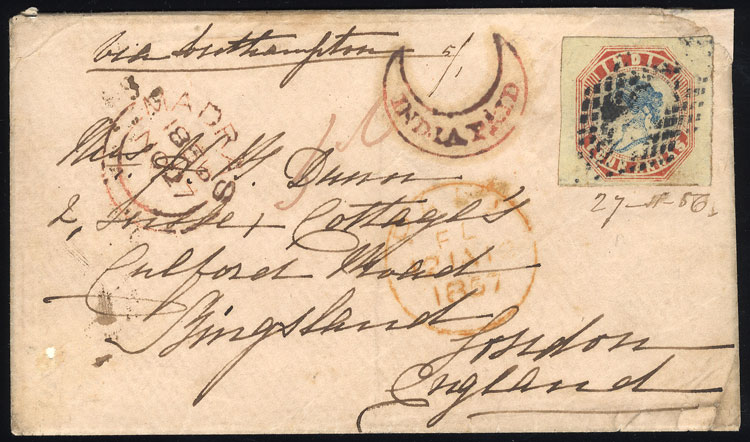 via Southampton 5/1
INDIA PAID
INDIA
FOUR ANNAS
MADRAS
27 56
Mrs. H. H. Dunn
2, Sussex Cottages
Culford Road
Kingsland
London
England
1857